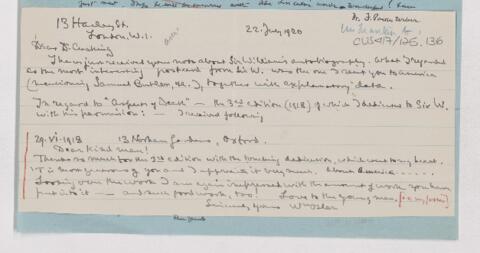 13 Harley St.
London, W.1.
22 July 1920
Dr. F. Parkes Weber
CUS417/125.136
Dear Dr. Cushing
I have just received your note about Sir William's autobiography. What I regard
as the most interesting postcard from Sir W. was the one I sent you to America
(mentioning Samuel Butler, &c.), together with explanatory data.
In regard to "Aspects of Death" – the 3rd edition (1918) of which I dedicated to Sir W.
with his permission: – I received following
29.VI.1918 13 Norham Gardens, Oxford.
Dear Kind man!
Thanks so much for the 3rd edition with the touching dedication, which went to my heart.
It is most generous of you and I appreciate it very much. About America.....
Looking over the work I am again impressed with the amount of work you have
put into it – and such good work, too! Love to the young man.
Sincerely yours Wm Osler